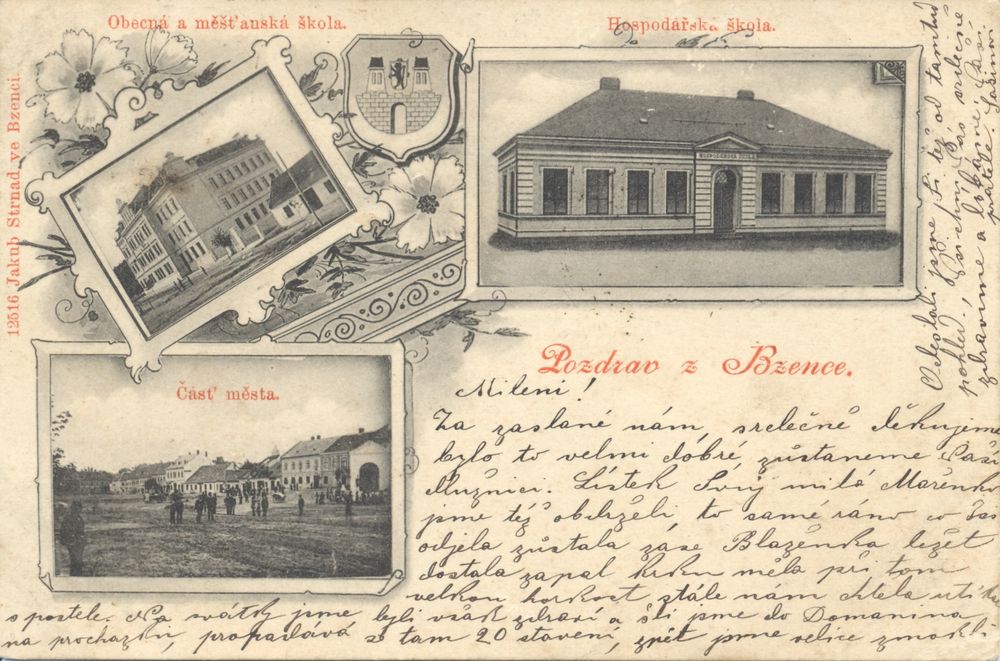 Obecná a měšťanská škola.
Hospodářska škola.
12516 Jakub Strnad, ve Bzenci.
HOSPODÁŘSKÁ ŠKOLA
Část' města.
Pozdrav z Bzence.
Mileni!
Za zaslané nám, srdečně děkujeme
bylo to velmi dobré, zůstaneme Vaši
dlužnici. Lístek Tvůj milá Mařenko
jsme též obdrželi, to samé ráno co
odjela zůstala zase Blaženka ležet
dostala zápal krku měla při tom
velkou horkost stále nám chtěla
s postele. Na svátky jsme byli však zdraví a šli jsme do Domanína
na procházku, propadává se tam 20 stavení, zpět jsme velice zmokli
Odeslali jsme též od tamtud
pohled! Všechny Vás srdečně
zdravíme a